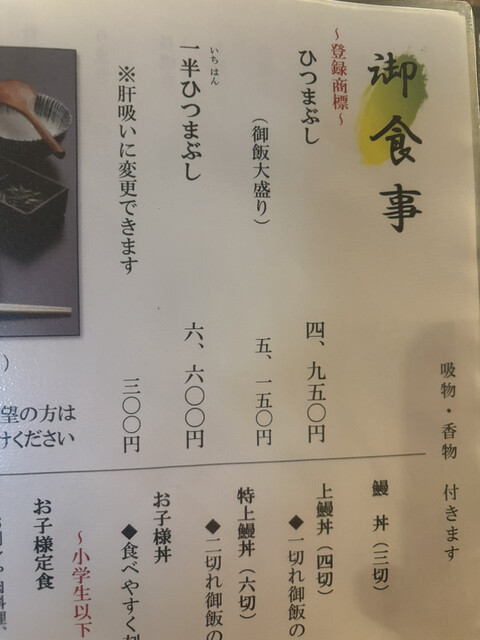 御食事
吸物・香物 付きます
～登録商標～
ひつまぶし 四、九五〇円
（御飯大盛り） 五、一五〇円
いちはん
一半ひつまぶし 六、六〇〇円
※肝吸いに変更できます 三〇〇円
望の方は
けください
鰻丼（三切）
上鰻丼（四切）
◆一切れ御飯の
特上鰻丼（六切）
◆二切れ御飯の
お子様丼
◆食べやすく刻
～小学生以下
お子様定食